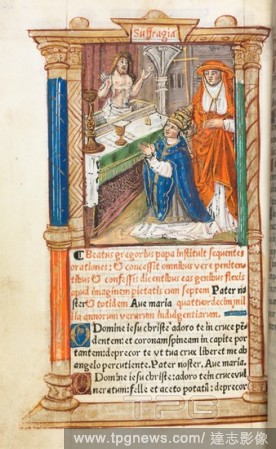 Suffragia
Beatus gregorius papa instituit sequentes
orationes: & concessit omnibus vere peniten
tibus & confessis dicentibus eas genibus flexis
apud imaginem pietatis cum septem Pater no
ster & totidem Aue maria quattuordecim mil
lia annorum verarum indulgentiarum.
Domine iesu christe adoro te in cruce pen
dentem: et coronam spineam in capite por
tantem: deprecor te vt tua crux liberet me ab
angelo percutiente. Pater noster. Aue maria.
Domine iesu christe: adoro te in cruce vul
neratum: felle et aceto potatum: deprecor
www.tpgnews.com/ 達志影像